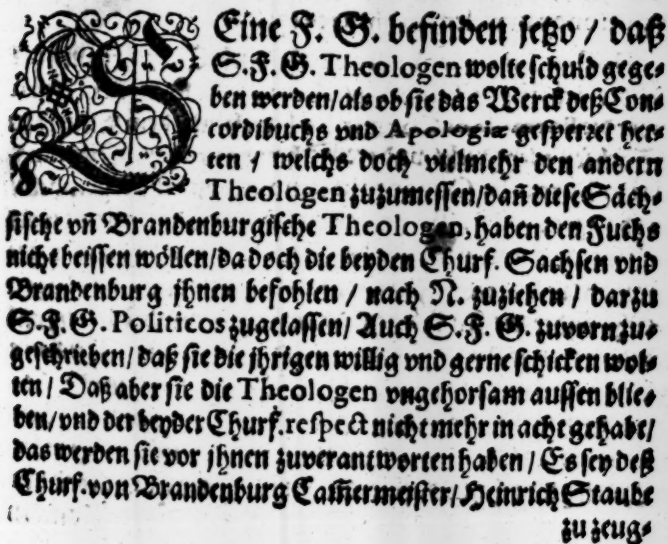 SEine F. G. befinden jetzo / daß
S. F. G. Theologen wolte schuld gege-
ben werden/als ob sie das Werck deß Con-
cordibuchs vnd Apologiæ gesperret het-
ten / welchs doch vielmehr den andern
Theologen zuzumessen/dañ diese Säch-
sische vñ Brandenburgische Theologen, haben den Fuchs
nicht beissen wöllen/da doch die beyden Churf. Sachsen vnd
Brandenburg jhnen befohlen / nach N. zuziehen / darzu
S. F. G. Politicos zugelassen/ Auch S. F. G. zuvorn zu-
geschrieben/ daß sie die jhrigen willig vnd gerne schicken wol-
ten / Daß aber sie die Theologen vngehorsam aussen blie-
ben/vnd der beyder Churf. respect nicht mehr in acht gehabt/
das werden sie vor jhnen zuverantworten haben / Es sey deß
Churf. von Brandenburg Cam̃ermeister/ Heinrich Staube
zu zeug-